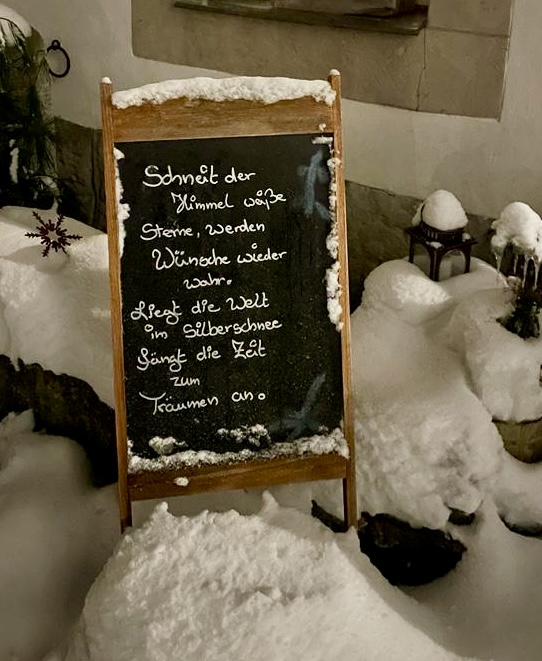 Schneit der
Himmel weiße
Sterne, werden
Wünsche wieder
wahr.
Liegt die Welt
im Silberschnee
fängt die Zeit
zum
Träumen an.